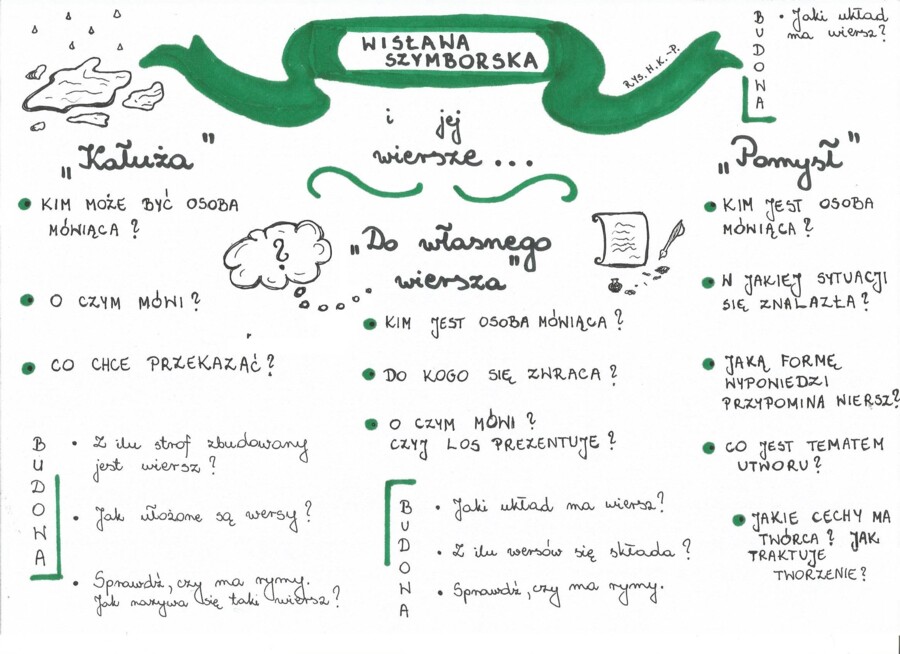 WISŁAWA
SZYMBORSKA
RYS. H.K.-P.
i jej
wiersze...
„Kałuża”
KIM MOŻE BYĆ OSOBA
MÓWIĄCA?
O CZYM MÓWI?
CO CHCE PRZEKAZAĆ?
BUDOWA
• Z ilu strof zbudowany
jest wiersz?
• Jak ułożone są wersy?
• Sprawdź, czy ma rymy.
Jak nazywa się taki wiersz?
?
„Do własnego
wiersza”
KIM JEST OSOBA MÓWIĄCA?
DO KOGO SIĘ ZWRACA?
O CZYM MÓWI?
CZYJ LOS PREZENTUJE?
BUDOWA
• Jaki układ ma wiersz?
• Z ilu wersów się składa?
• Sprawdź, czy ma rymy.
BUDOWA
• Jaki układ
ma wiersz?
„Pomysł”
KIM JEST OSOBA
MÓWIĄCA?
W JAKIEJ SYTUACJI
SIĘ ZNALAZŁA?
JAKĄ FORMĘ
WYPOWIEDZI
PRZYPOMINA WIERSZ?
CO JEST TEMATEM
UTWORU?
JAKIE CECHY MA
TWÓRCA? JAK
TRAKTUJE
TWORZENIE?